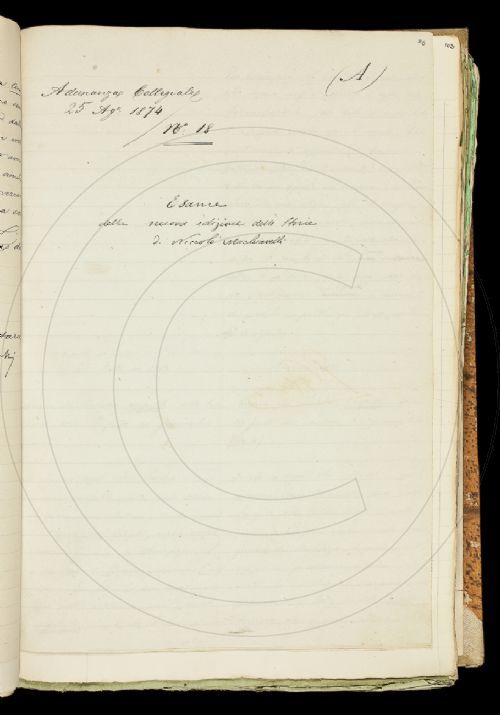 (A)
Adunanza Collegiale
25 Ag. 1874
N. 18
Esame
della nuova edizione delle Storie
di Niccolò Machiavelli
103